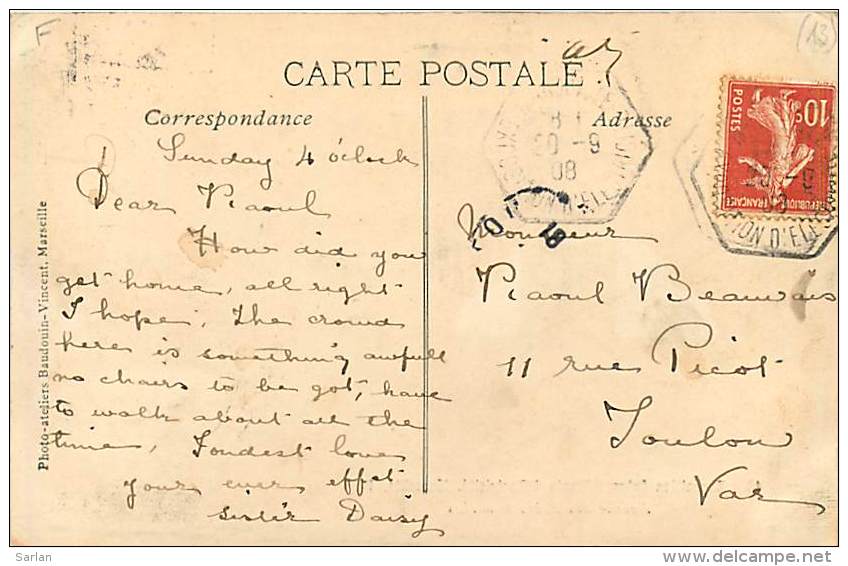 F
(13)
CARTE POSTALE
Correspondance
Adresse
Sunday 4 o'clock
Dear Raoul
How did you
get home, all right
I hope. The crowd
here is something awfull
no chairs to be got, have
to walk about all the
time, Fondest love
your ever effct
sister Daisy
Photo-ateliers Baudouin-Vincent, Marseille
20 -9
08
ION D'ELE
10c
POSTES
REPUBLIQUE FRANÇAISE
ION D'ELEC
Monsieur
Raoul Beauvais
11 rue Picot
Toulon
Var
Sarlan
http://www.delcampe.net